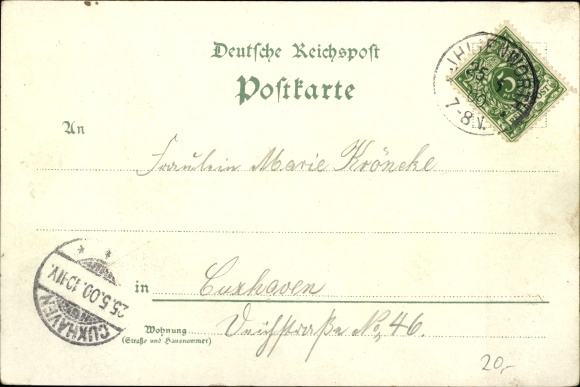 Deutsche Reichspost
Postkarte
25 5
00
7-8V.
5
An
Fräulein Marie Kröncke
in Cuxhaven
Wohnung
(Straße und Hausnummer)
Deichstraße No, 46.
CUXHAVEN
25.5.00.10-11V.
* *
20,-